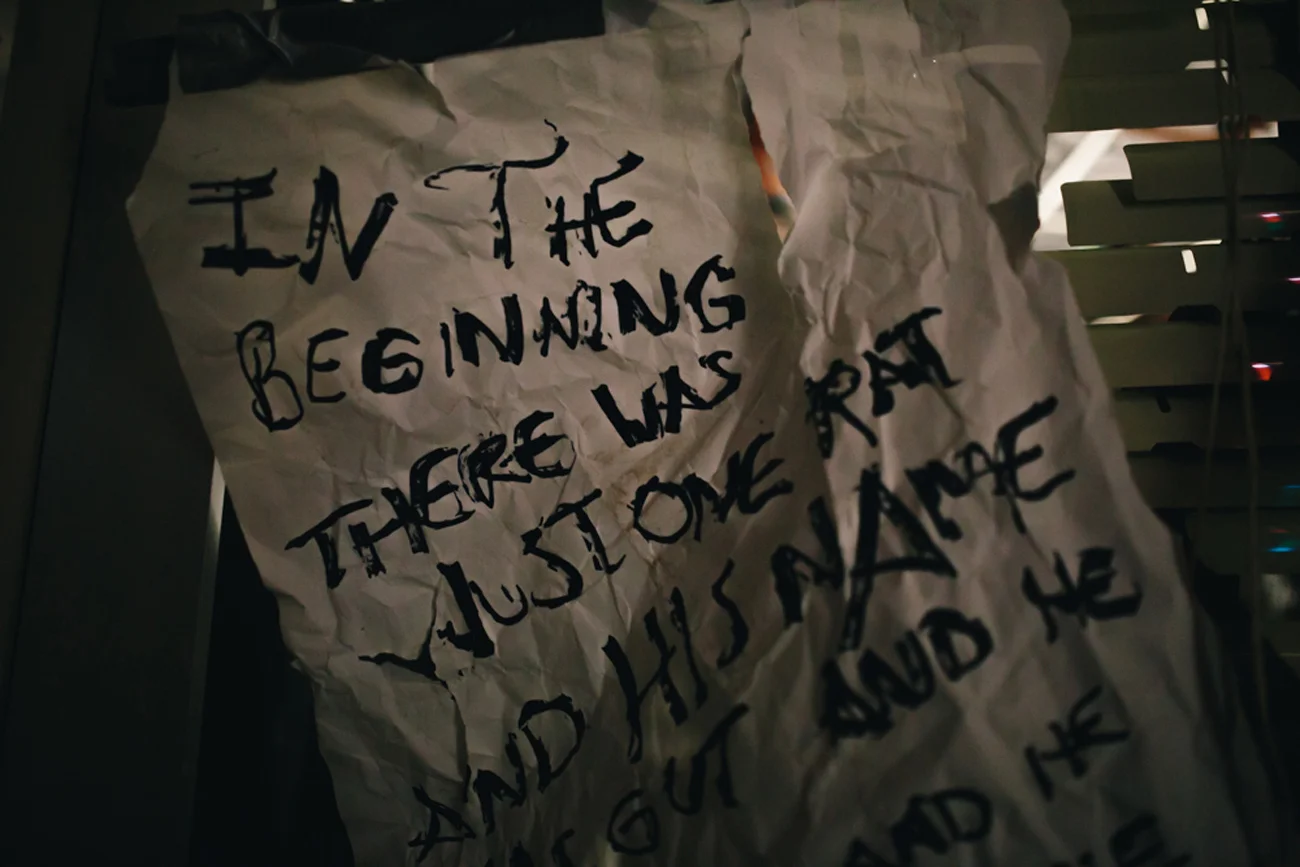 IN THE
BEGINNING
THERE WAS
JUST ONE RAT
AND HIS NAME
WAS GUT AND HE
AND HE